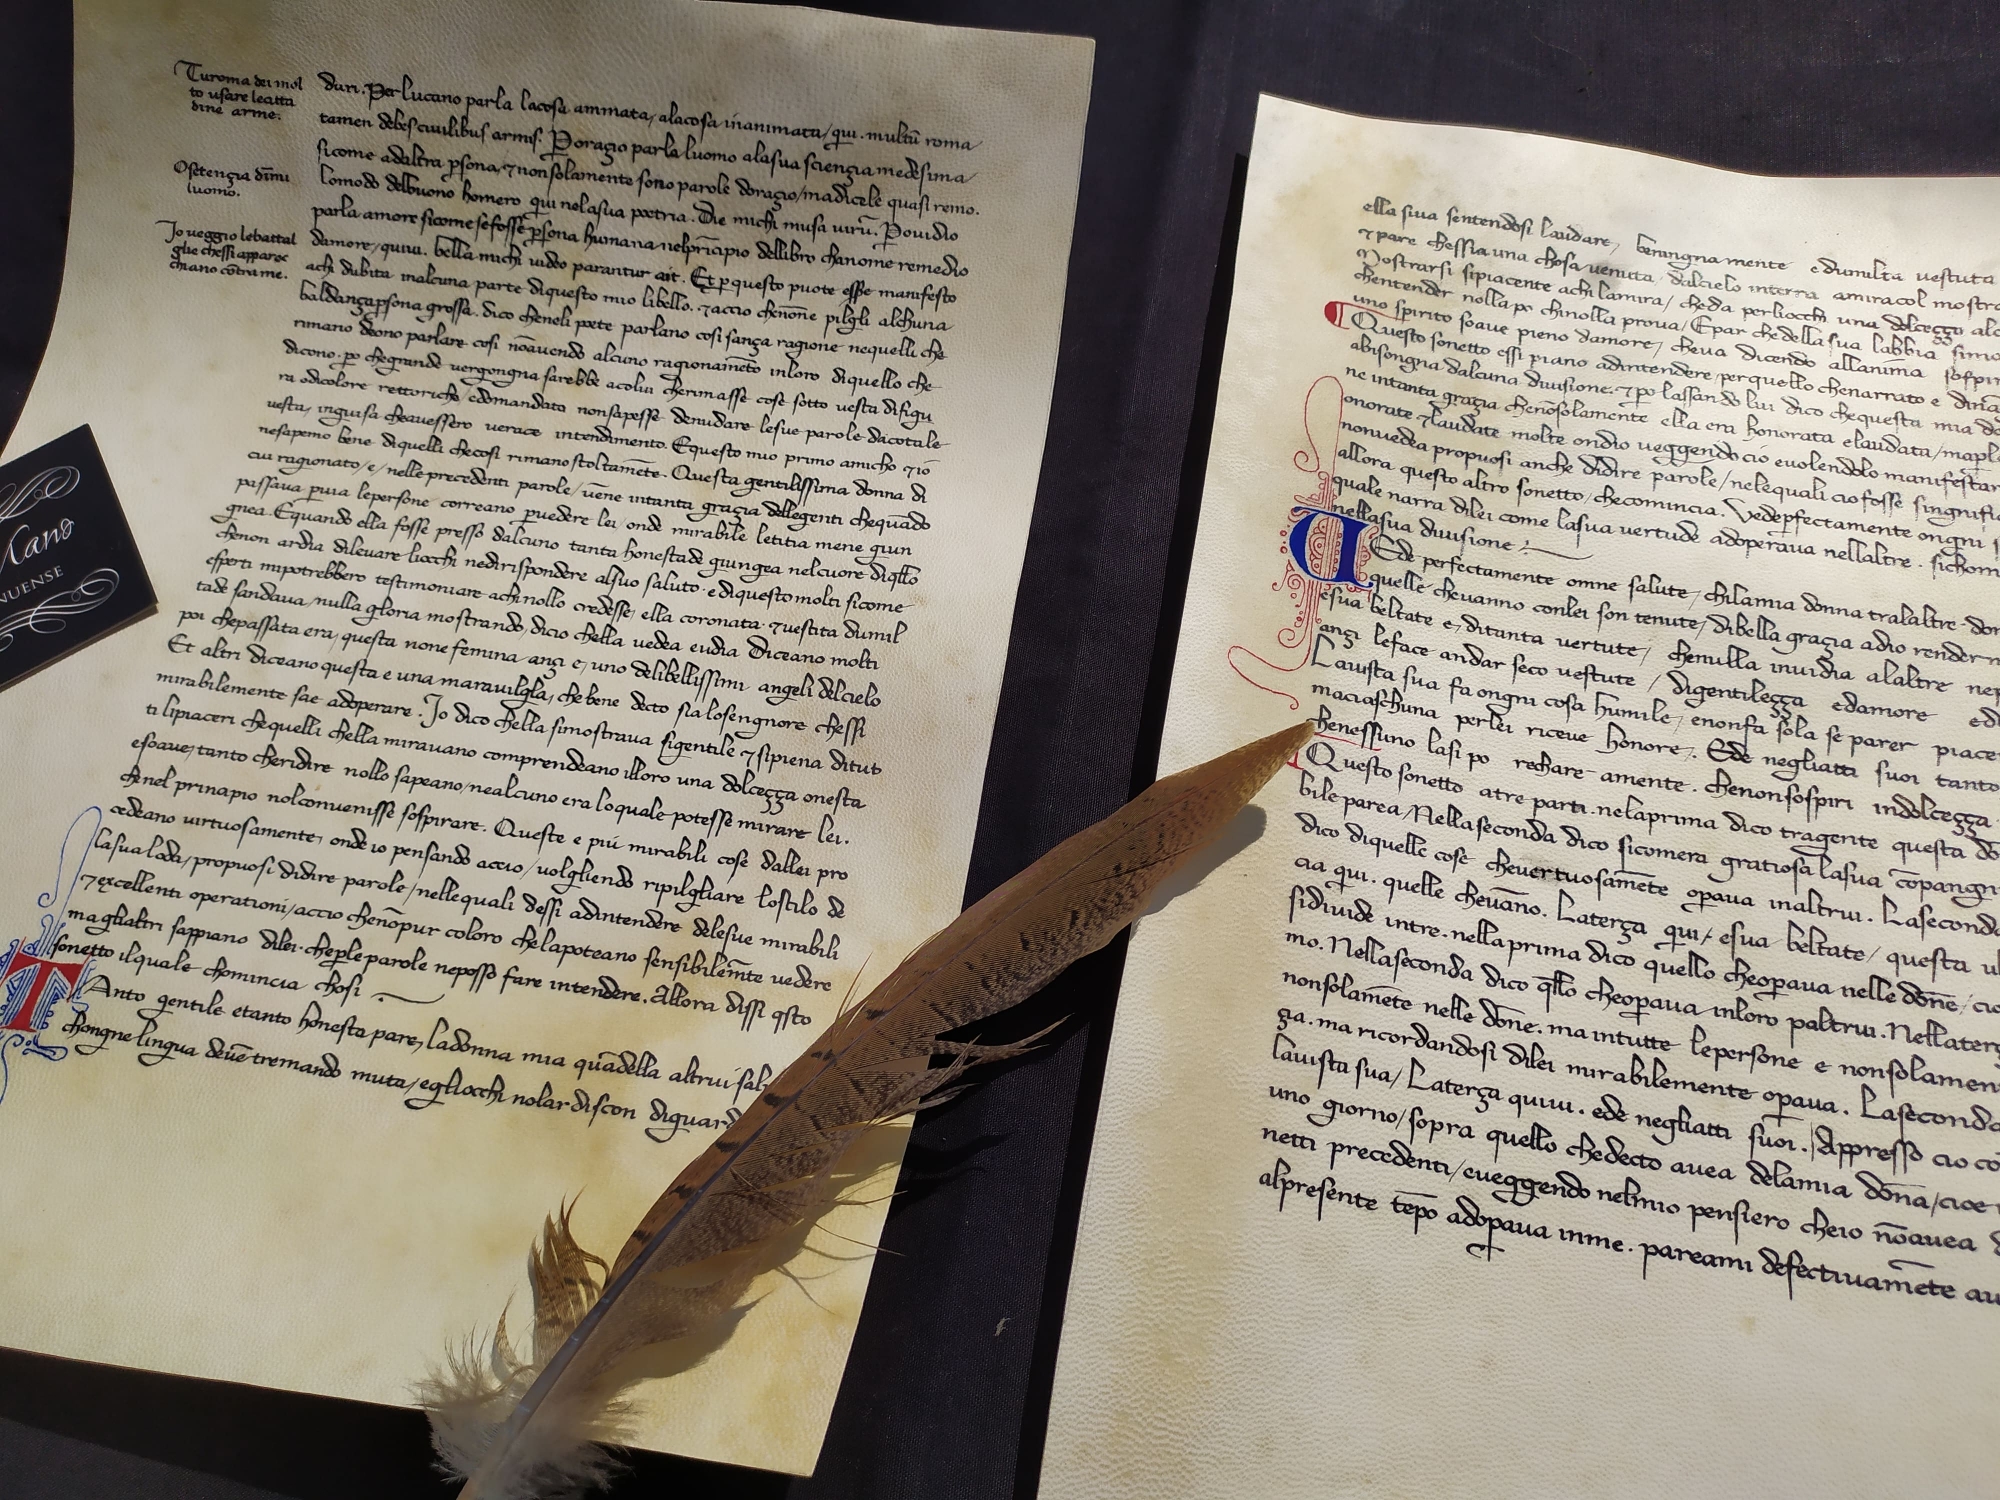 Turoma dei mol
to usare lecitta
dine arme.
Osetença dūnu
luomo.
Jo ueggio lebattal
glie chessi appareς
chiano cōtra me.
duri. Per lucano parla lacosa ammata, alacosa inanimata/ qui. multū roma
tamen debes ciuilibus armis. Poraçio parla luomo alasua sciençia medesima
sicome adaltra psona, ⁊ nonsolamente sono parole doraçio/ madicele quasi remo.
lomodo delbuono homero qui nelasua poetria. Die michi musa uirū. Pouidio
parla amore sicome sefosse psona humana nelprīcipio dellibro chanome remedio
damore, quiui. bella michi uideo parantur ait. Et p questo puote esse manifesto
achi dubita inalcuna parte diquesto mio libello. ⁊ accio chenōne pilgli alchuna
baldança psona grossa. dico cheneli poete parlano cosi sança ragione nequelli che
rimano deono parlare cosi nōauendo alcuno ragionamēto inloro diquello che
dicono. po chegrande uergongna sarebbe acolui cherimasse cose sotto uesta difigu
ra odicolore rettoricho/ edomandato nonsapesse denudare lesue parole dacotale
uesta, inguisa cheauessero uerace intendimento. Equesto mio primo amicho ⁊ io
nesapemo bene diquelli checosi rimano stoltamēte. Questa gentilissima donna di
cui ragionato/ e/ nelle precedenti parole/ uēne intanta graçia dellegenti chequādo
passaua puia lepersone correano puedere lei. onde mirabile letitia mene giun
gnea. Equando ella fosse presso dalcuno tanta honestade giungea nelcuore diqllo
chenon ardia dileuare liocchi nedirispondere alsuo saluto. e diquesto molti sicome
esperti mipotrebbero testimoniare achi nollo credesse, ella coronata. ⁊ uestita dumil
tade sandaua, nulla gloria mostrando, dicio chella uedea eudia Diceano molti
poi chepassata era, questa none femina ançi e, uno delibellissimi angeli delcielo
Et altri diceano questa e una marauilgla, che bene decto sia losengnore chessi
mirabilemente sae adoperare. Jo dico chella simostraua sigentile ⁊ sipiena ditut
ti lipiaceri chequelli chella mirauano comprendeano illoro una dolceçça onesta
esoaue, tanto cheridire nollo sapeano, nealcuno era loquale potesse mirare lei.
chenel principio nolconuenisse sospirare. Queste e piú mirabili cose dallei pro
cedeano uirtuosamente, onde io pensando accio/ uolgliendo ripilgliare lostilo de
lasua loda, propuosi didire parole/ nellequali dessi adintendere delesue mirabili
⁊ excellenti operationi/ accio chenōpur coloro chelapoteano sensibilemēte uedere
ma gliàltri sappiano dilei. cheple parole neposso fare intendere. Allora dissi qsto
sonetto ilquale chomincia chosi
TAnto gentile etanto honesta pare, ladonna mia quādella altrui sal
chongne lingua deuē tremando muta/ egliocchi nolar discon diguard
Mano
NUENSE
ella siua sentendosi laudare, beningna mente edumilta uestuta
⁊ pare chessia una chosa uenuta, dalcielo interra amiracol mostra
Mostrarsi sipiacente achi lamira/ cheda perliocchi una dolceçça alc
chentender nolla po chinolla proua/ Epar chedella sua labbia simo
uno spirito soaue pieno damore, cheua dicendo allanima sospir
Questo sonetto essi piano adintendere, perquello chenarrato e dinā
abisongna dalcuna diuisione. ⁊ po lassando lui dico chequesta mia do
ne intanta graçia chenōsolamente ella era honorata elaudata/ maple
onorate ⁊ laudate molte ondio ueggendo cio euolendolo manifestar
nonuedea propuosi anche didire parole/ nelequali cio fosse singnific
allora questo altro sonetto, checomincia. Vedepfectamente ongni s
quale narra dilei come lasua uertude adoperaua nellaltre. sichom
nellasua diuisione
VEde perfectamente omne salute, chilamia donna tralaltre. don
quelle cheuanno conlei son tenute, dibella graçia adio render m
esua beltate e, ditanta uertute, chenulla inuidia alaltre nep
ançi leface andar seco uestute, digentileçça edamore edi
Lauista sua fa ongni cosa humile, enonfa sola se parer piace
maciaschuna perlei riceue honore. Ede negliatti suoi tanto
chenessuno lasi po rechare amente. chenonsospiri indolceçça
Questo sonetto atre parti. nelaprima dico tragente questa do
bile parea/ Nellaseconda dico sicomera gratiosa lasua cōpangn
dico diquelle cose cheuertuosamēte opaua inaltrui. Laseconda
cia qui. quelle cheuāno. Laterça qui, esua beltate, questa ul
sidiuide intre. nella prima dico quello cheopaua nelle dōne, cio
mo. Nellaseconda dico qllo cheopaua inloro paltrui. Nellaterç
nonsolamēte nelle dōne. ma intutte lepersone e nonsolamen
ça. ma ricordandosi dilei mirabilemente opaua. Laseconda
lauista sua/ Laterça quiui. ede negliatti suoi. Appresso cio co
uno giorno/ sopra quello chedecto auea delamia dōna/ cioe
netti precedenti/ eueggendo nelmio pensiero cheio nōauea d
alpresente tēpo adopaua inme. pareami defectiuamēte au